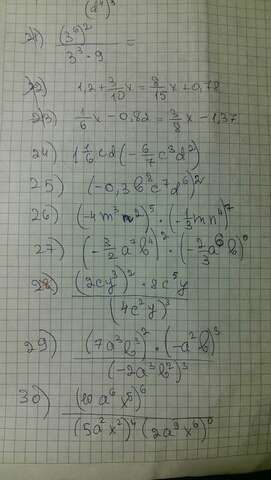 (d⁴)³
21) (3⁶)² / (3³ · 9) =
22) 1,2 + 3/10 x = 8/15 x + 0,78
23) 1/6 x - 0,82 = 3/8 x - 1,37
24) 1 1/6 cd (- 6/7 c³d²)
25) (-0,3b⁸c⁷d⁶)²
26) (-4m³n²)⁵ · (- 1/3 mn⁴)⁷
27) (- 3/2 a⁷b⁴)² · (- 2/3 a⁶b)⁰
28) (2cy³)² · 8c⁵y / (4c²y)³
29) (7a³b³)² · (-a²b)³ / (-2a³b²)³
30) (10a⁶x⁵)⁶ / (5a²x²)⁴ (2a⁹x⁶)⁰